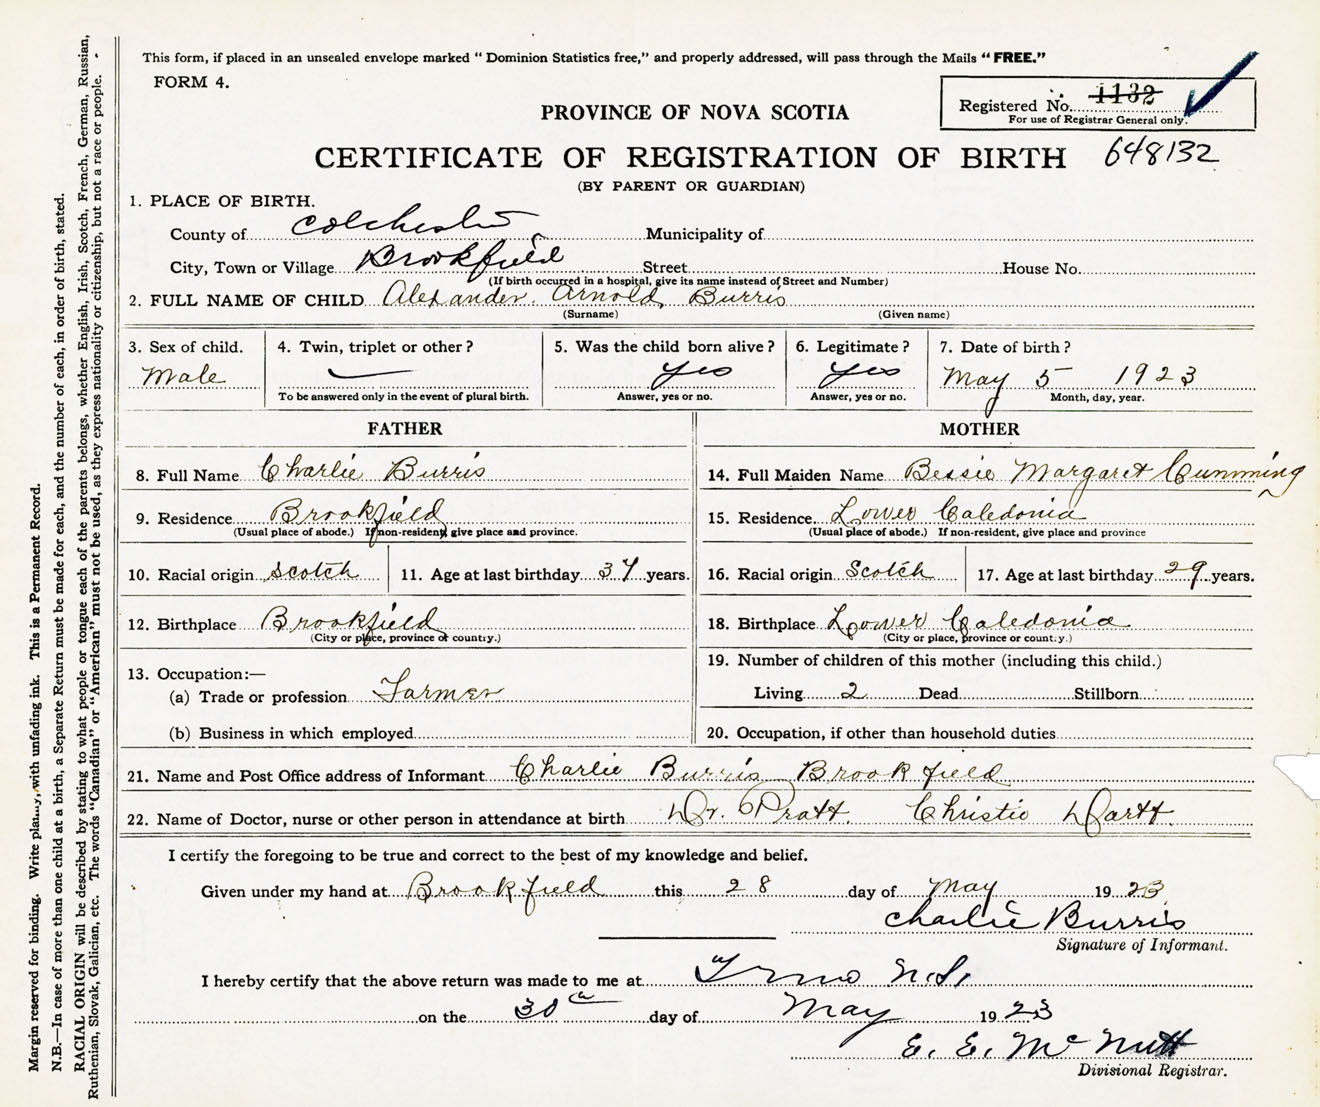 This form, if placed in an unsealed envelope marked “ Dominion Statistics free,” and properly addressed, will pass through the Mails “ FREE.”
FORM 4.
Registered No. 1132
For use of Registrar General only.
PROVINCE OF NOVA SCOTIA
CERTIFICATE OF REGISTRATION OF BIRTH 648132
(BY PARENT OR GUARDIAN)
1. PLACE OF BIRTH.
County of Colchester Municipality of
City, Town or Village Brookfield Street House No.
(If birth occurred in a hospital, give its name instead of Street and Number)
2. FULL NAME OF CHILD Alexander Arnold Burris
(Surname) (Given name)
3. Sex of child. 4. Twin, triplet or other? 5. Was the child born alive? 6. Legitimate? 7. Date of birth?
Male — Yes Yes May 5 1923
To be answered only in the event of plural birth. Answer, yes or no. Answer, yes or no. Month, day, year.
FATHER MOTHER
8. Full Name Charlie Burris 14. Full Maiden Name Bessie Margaret Cumming
9. Residence Brookfield 15. Residence Lower Caledonia
(Usual place of abode.) If non-resident, give place and province. (Usual place of abode.) If non-resident, give place and province
10. Racial origin Scotch 11. Age at last birthday 37 years. 16. Racial origin Scotch 17. Age at last birthday 29 years.
12. Birthplace Brookfield 18. Birthplace Lower Caledonia
(City or place, province or country.) (City or place, province or country.)
13. Occupation:— 19. Number of children of this mother (including this child.)
(a) Trade or profession Farmer Living 2 Dead Stillborn
(b) Business in which employed 20. Occupation, if other than household duties
21. Name and Post Office address of Informant Charlie Burris Brookfield
22. Name of Doctor, nurse or other person in attendance at birth Dr. Pratt. Christie Dartt.
I certify the foregoing to be true and correct to the best of my knowledge and belief.
Given under my hand at Brookfield this 28 day of May 1923
Charlie Burris
Signature of Informant.
I hereby certify that the above return was made to me at Truro N.S.
on the 30th day of May 1923
E. E. McNutt
Divisional Registrar.
Margin reserved for binding. Write plainly, with unfading ink. This is a Permanent Record.
N.B.—In case of more than one child at a birth, a Separate Return must be made for each, and the number of each, in order of birth, stated.
RACIAL ORIGIN will be described by stating to what people or tongue each of the parents belongs, whether English, Irish, Scotch, French, German, Russian,
Ruthenian, Slovak, Galician, etc. The words “Canadian” or “American” must not be used, as they express nationality or citizenship, but not a race or people.